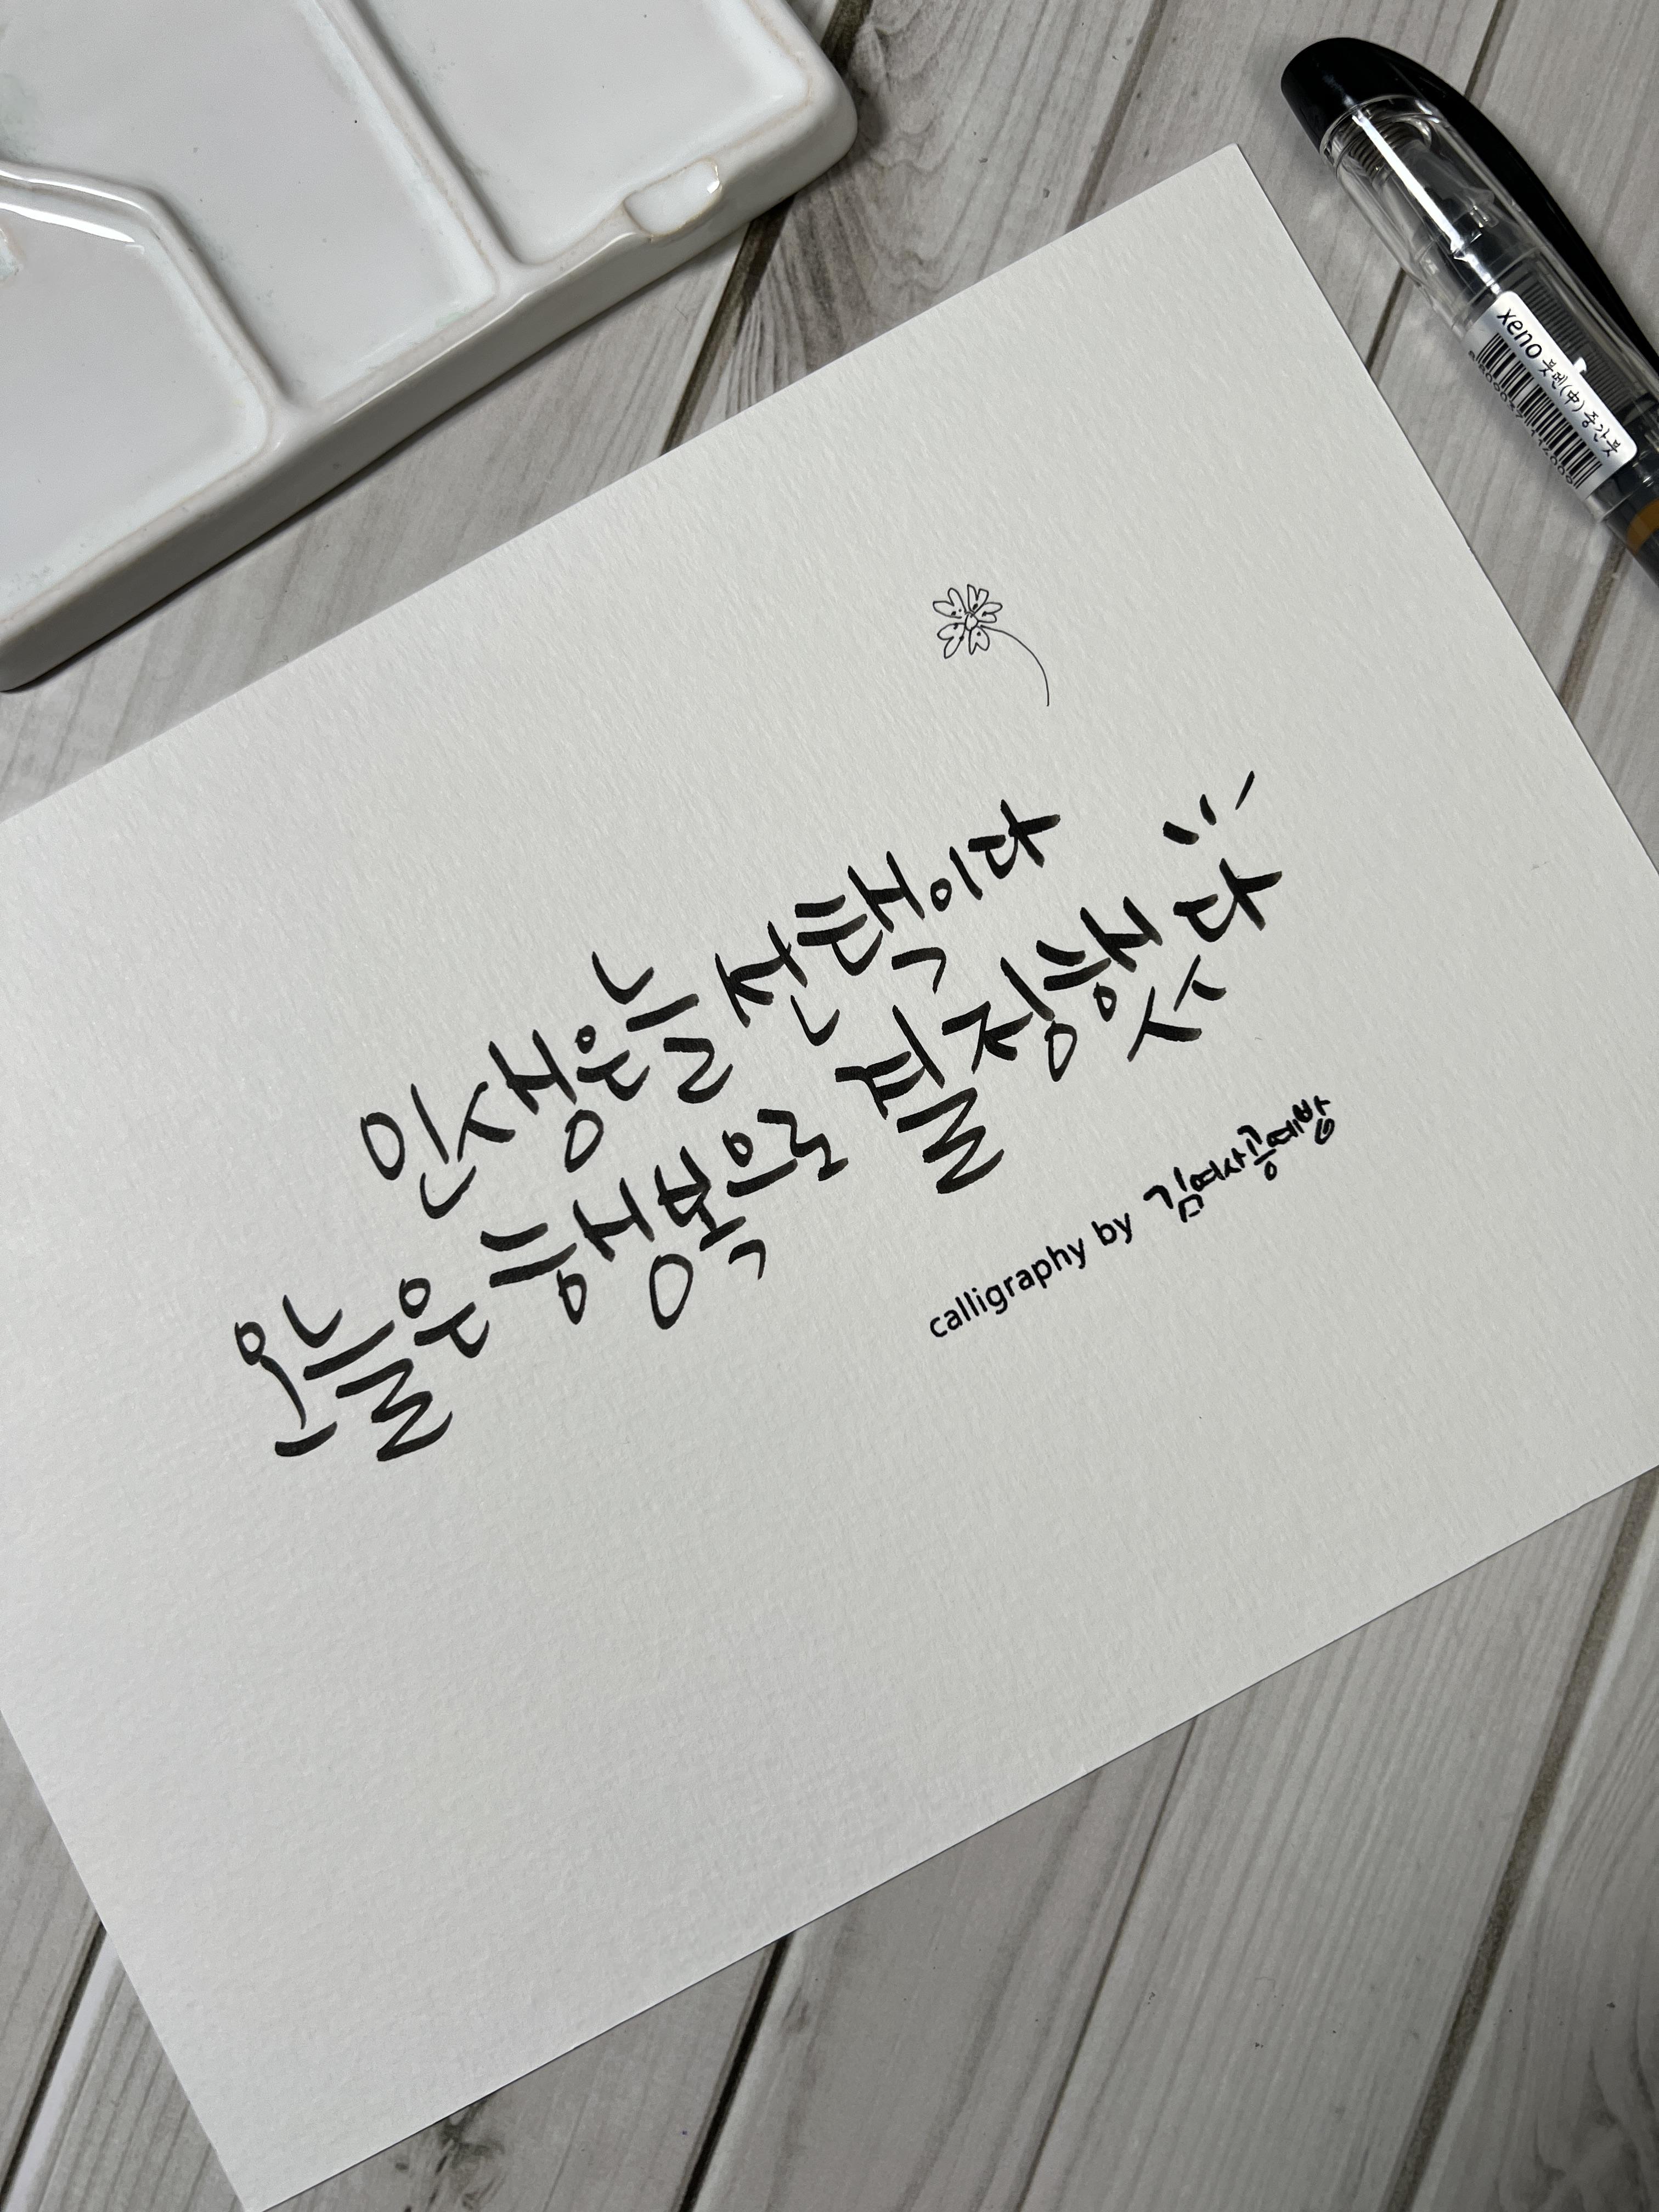 인생은 늘 선택이다
오늘은 행복으로 결정했다
calligraphy by 김여사공예방
xeno 붓펜(中) 중간붓